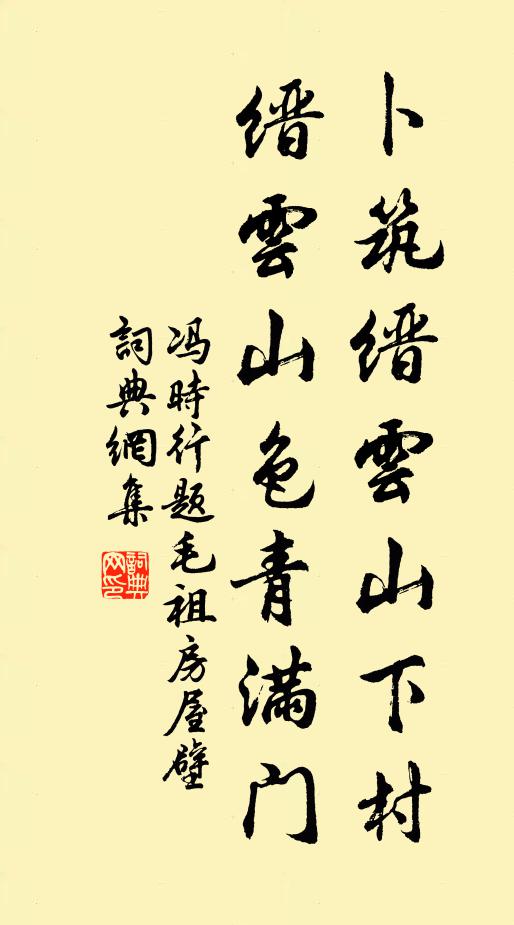 卜筑缙雲山下村
缙雲山色青滿门
冯時行题毛祖房屋壁
詞典網集
詞典网印